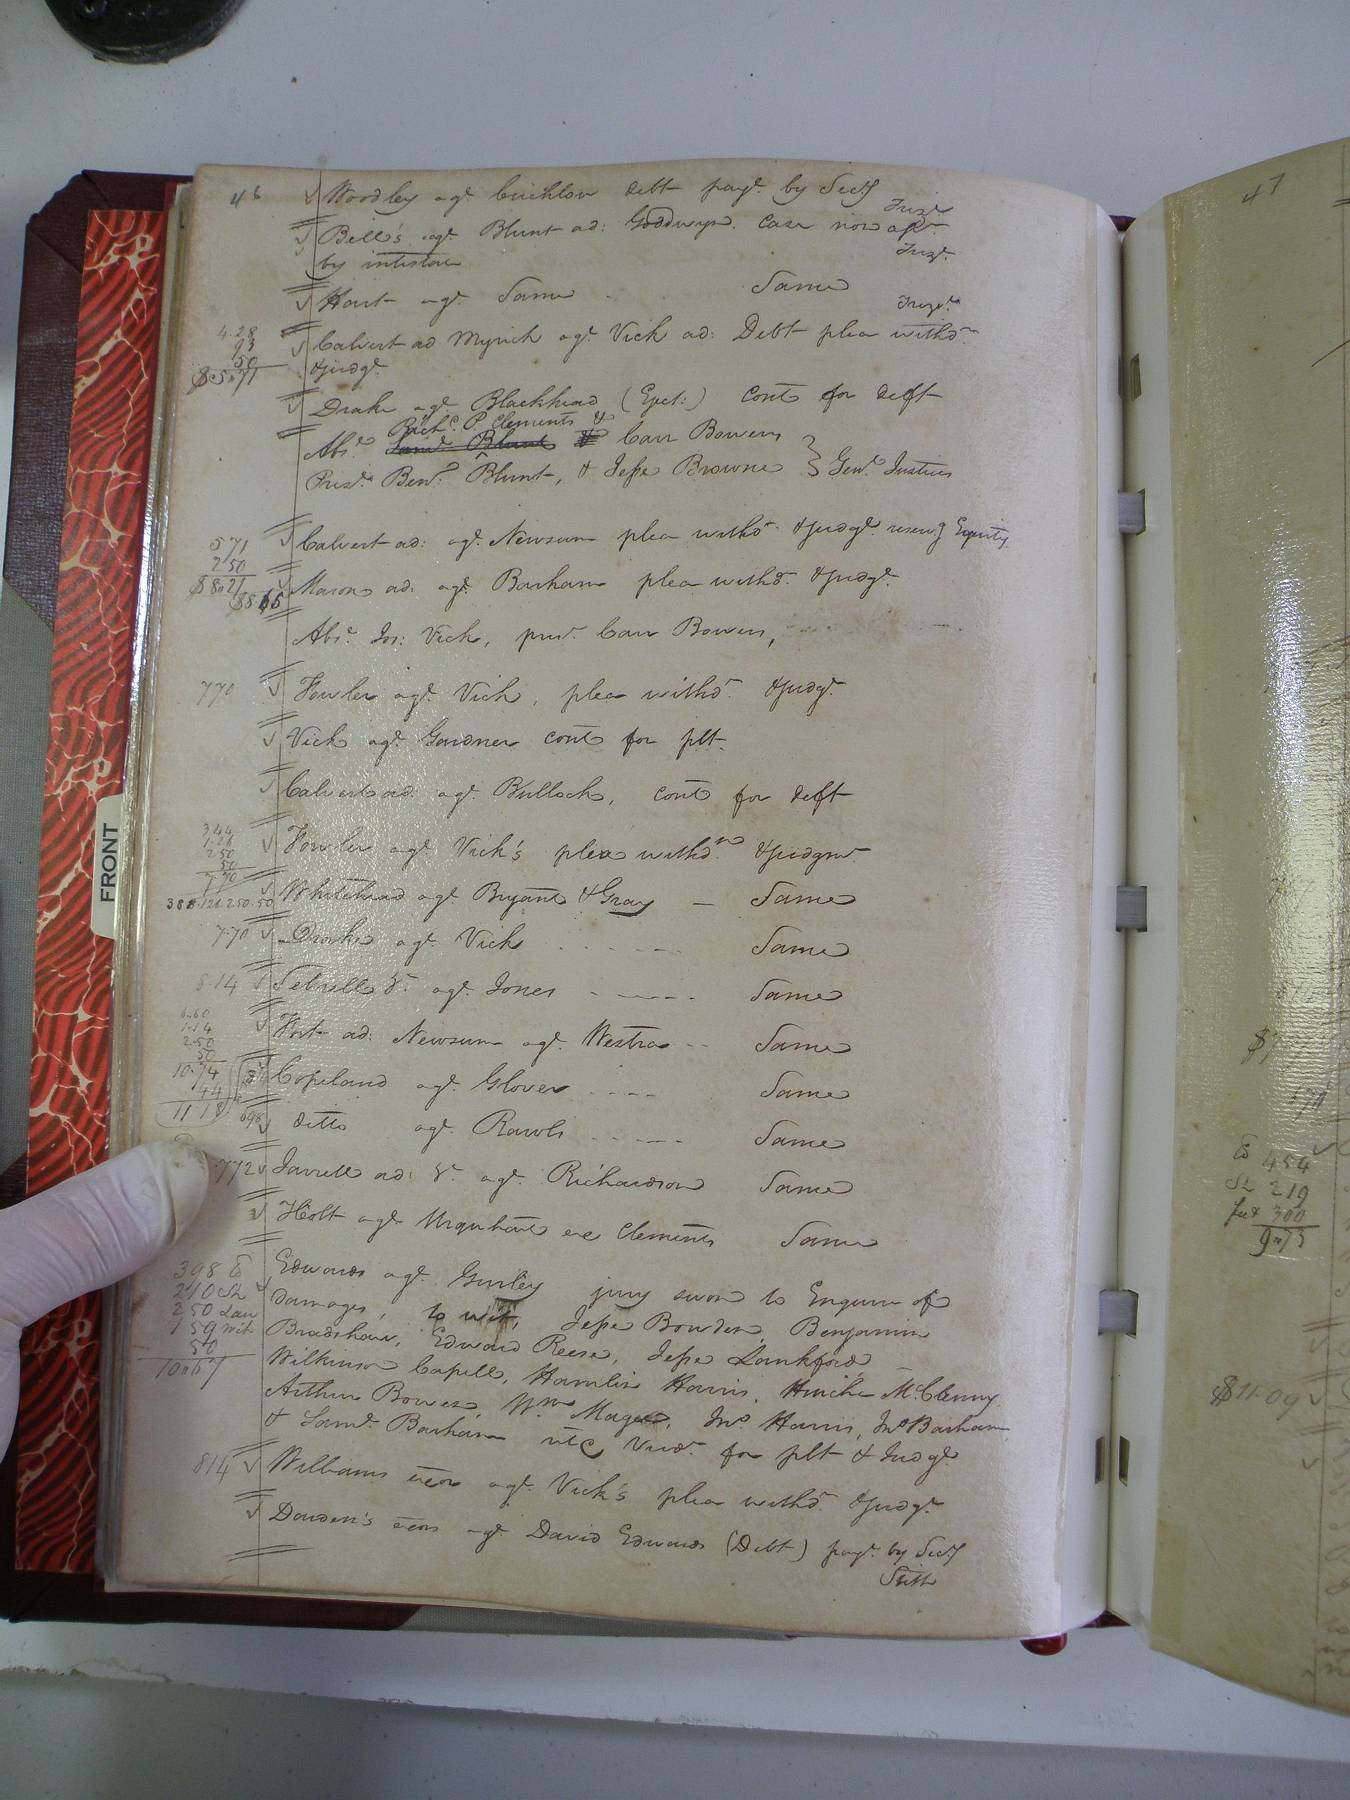 46
Woodley agt. Crichlow debt payt. by Secy
Trezt.
Bell's agt. Blunt ad: Goddwyn. case now apt
by intestare
Trezt.
Hart agt. Same Same
Trezt.
4.28
93
50
$5"71
Calvert ad Myrick agt. Vick ad: Debt plea withd.
& judgt.
Drake agt. Blackhead (Eject:) cont for deft
Richd. P Clements &
Abst. Saml. Blunt & Carr Bowers
Prest. Benn. Blunt, & Jesse Browne } Gent. Justices
571
250
$8"21
Calvert ad: agt. Newsum plea withd & judgt. reserg Equity
$8
Mason ad. agt. Barham plea withd. & judgt.
Abst. Jos: Vick, prest. Carr Bowers,
770
Fowler agt. Vick, plea withd. & judgt.
Vick agt. Gardner cont for plt.
Calvert ad. agt. Bullock, cont for deft
344
1.26
2.50
50
7.70
Fowler agt. Vick's plea withd. & judgmt.
388.126.250.50
Whitehead agt. Bryant & Gray — Same
7.70
Drake agt. Vick Same
8.14
Sebrell &c. agt. Jones Same
6.60
1.14
2.50
50
10.74
44
11 18
Fort ad: Newsum agt. Westra Same
Copeland agt. Glover Same
698
ditto agt. Rawls Same
772
Jarrell ad: &c. agt. Richardson Same
Holt agt. Urquhart exe Clements Same
398
210 Sh
250 Law
159 Wit
50
10"67
Edwards agt. Gurley jury sworn to Enquire of
damages, to wit, Jesse Bowden, Benjamin
Bradshaw, Edward Reese, Jesse Lankford
Wilkinson Capell, Hamlin Harris, Hinche McClenny
Arthur Bowers, Wm Magee, Jno Harris, Jno Barham
& Saml. Barham etc Verdt. for plt & Judgt
814
Williams exor agt. Vick's plea withd. & judgt.
Douden's exors agt. David Edwards (Debt) payt. by Secy
Smith
FRONT
47
$7
454
Sh 219
Fee 300
9"73
$11.09